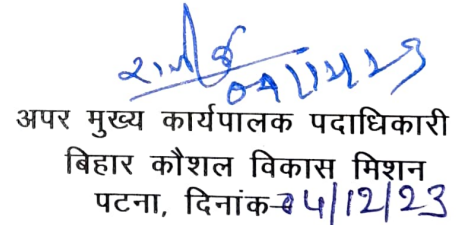 04/12/23
अपर मुख्य कार्यपालक पदाधिकारी
बिहार कौशल विकास मिशन
पटना, दिनांक-04/12/23